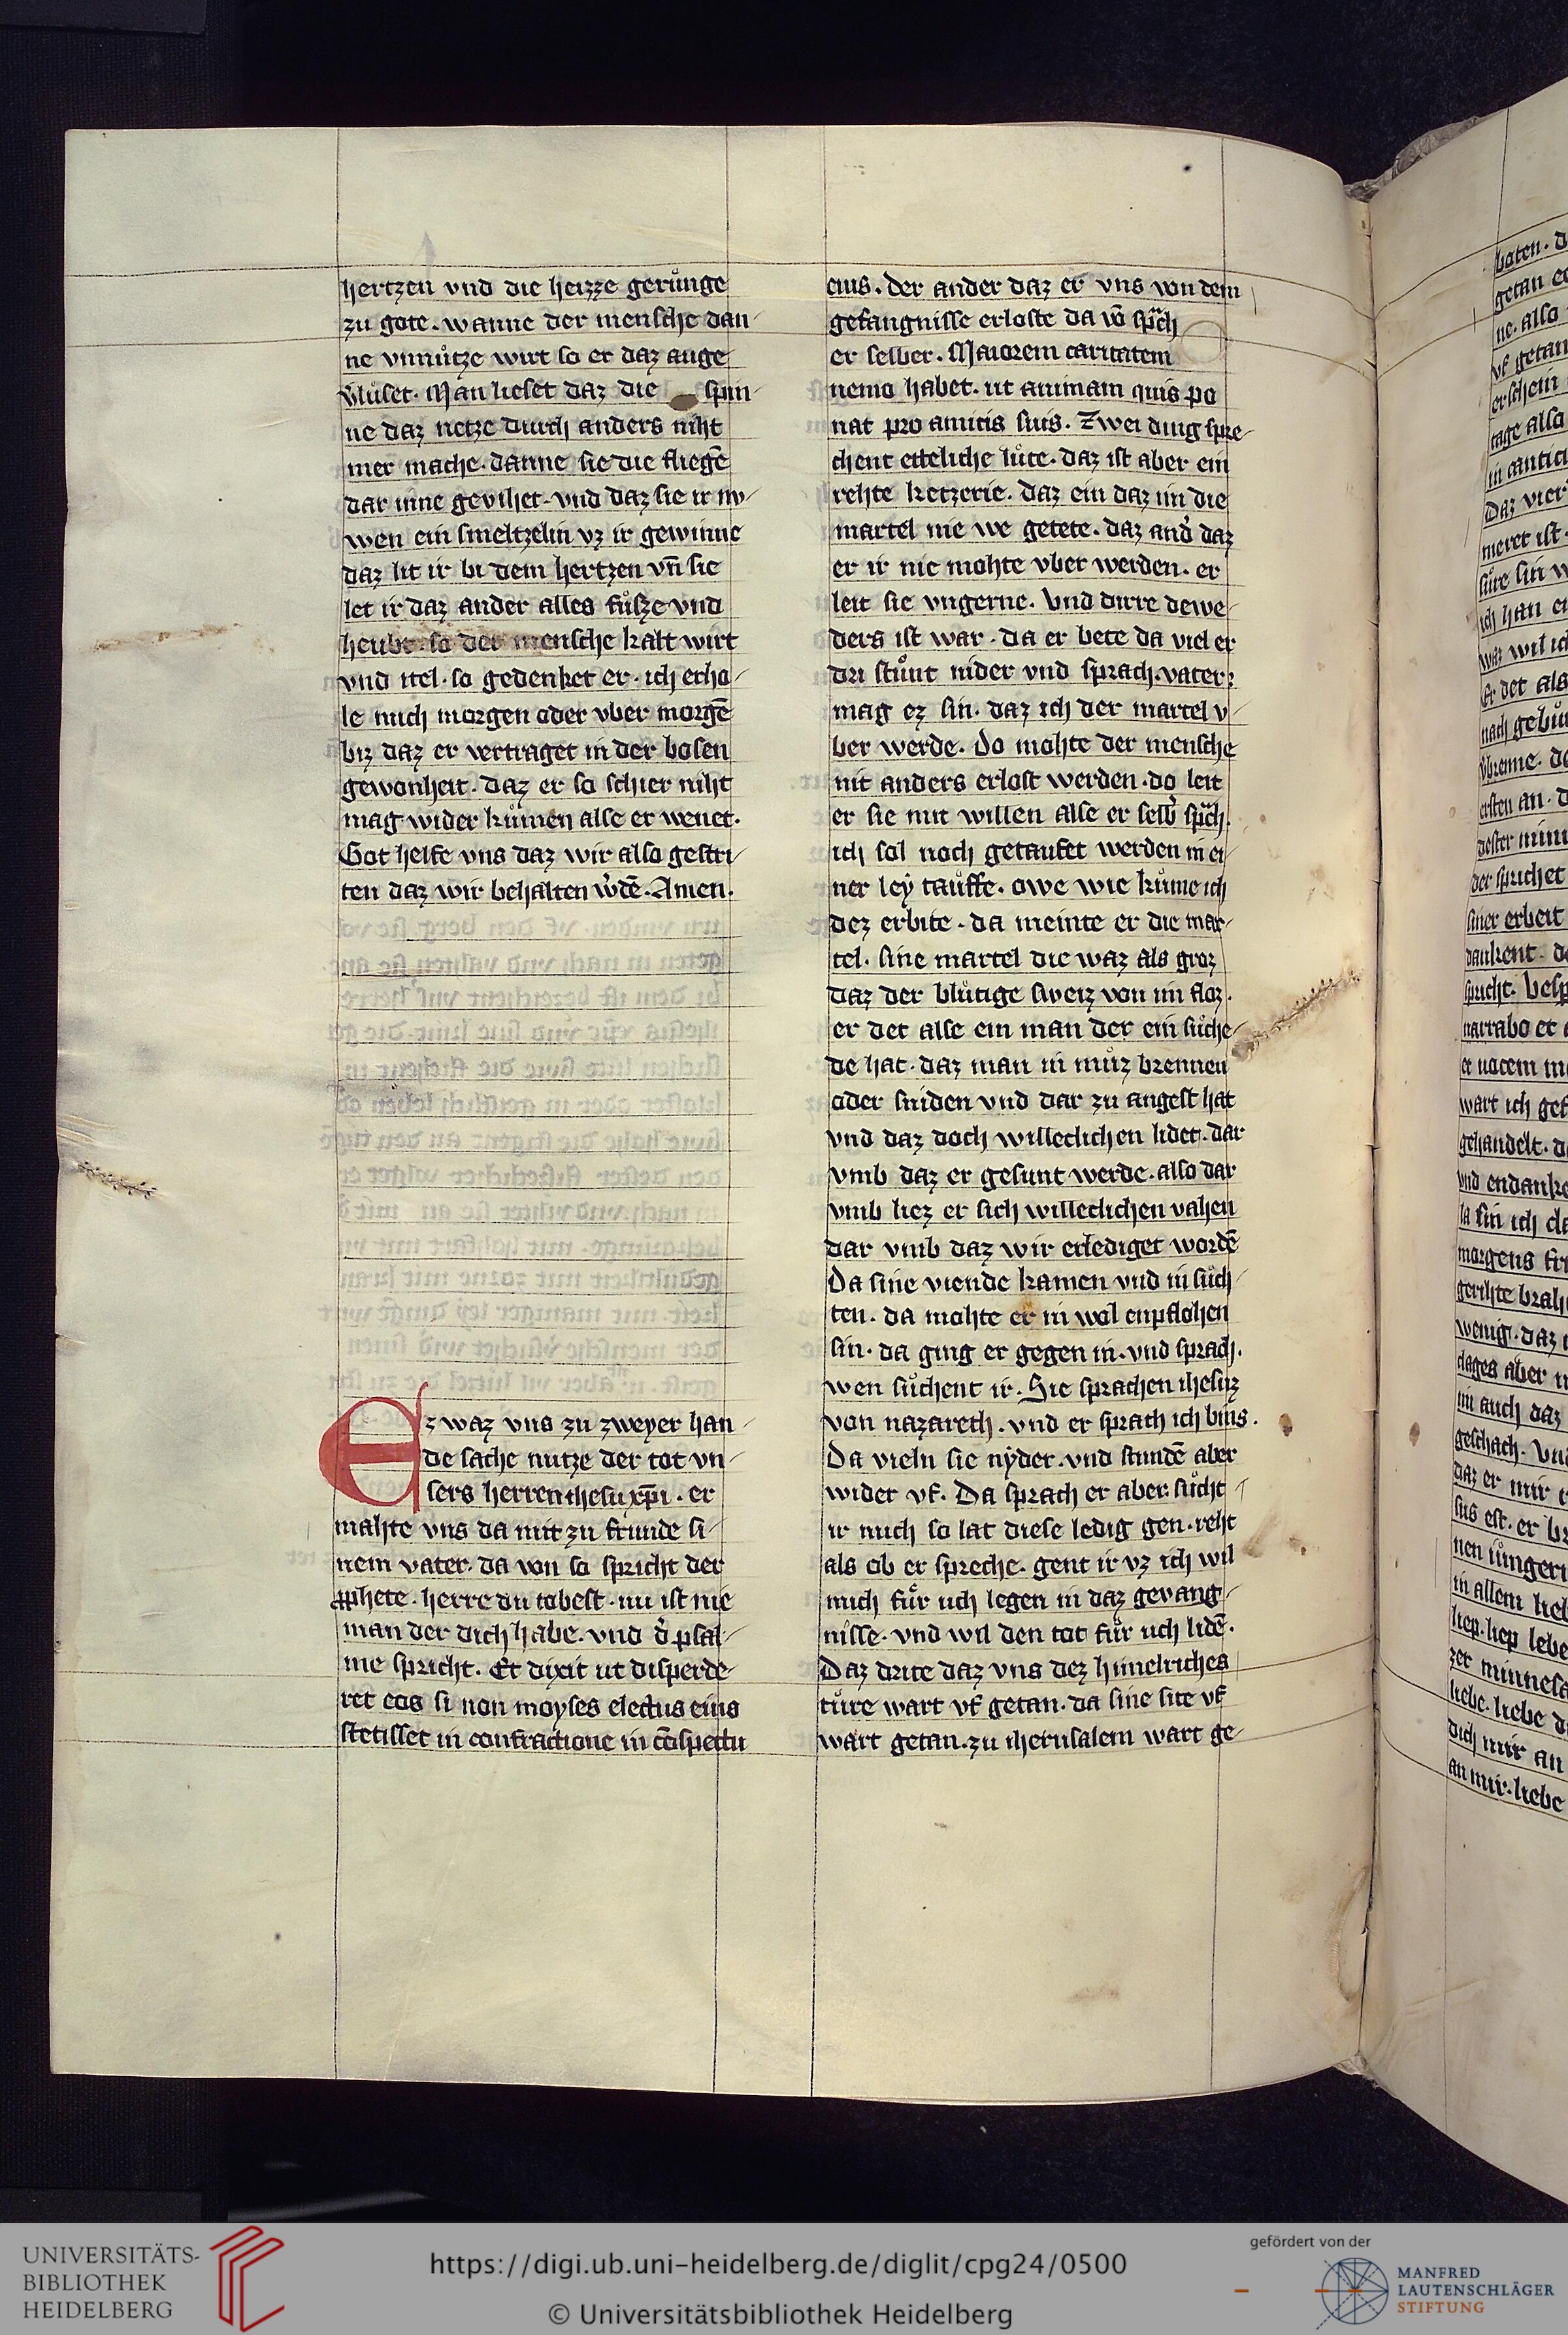 hertzen vnd die heizze gerůnge
zu gote. wanne der mensche dan-
ne vnnůtze wirt so er daz auge
v̉lůset. Man lieset daz die spin-
ne daz netze durch anders niht
mer mache. danne sie die fliegē
dar inne gevihet. vnd daz sie ir nv-
wen ein smeltzelin vz ir gewinne
daz lit ir bi dem hertzen vn̄ sie
let ir daz ander alles fůlze vnd
heubt. so der mensche kalt wirt
vnd itel. so gedenket er. ich erho-
le mich morgen oder vber morgē
biz daz er vertraget in der bosen
gewonheit. daz er so schier niht
mag wider kůmen alse er wenet.
Got helfe vns daz wir also gestri-
ten daz wir behalten w̉dē. Amen.
Ez waz vns zu zweyer han-
de sache nutze der tot vn-
sers herren ihesu xp̄i. er
mahte vns da mit zu frunde si-
nem vater. da von so spricht der
ꝓphete. herre du tobest. nu ist nie
man der dich habe. vnd d̉ psal-
me spricht. Et dixit ut disperde-
ret eos si non moyses electus eius
stetisset in confractione in cōspectu
eius. der ander daz er vns von dem
gefangnisse erloste da vō sp̃ch
er selber. Maiorem caritatem
nemo habet. ut animam quis po
nat pro amicis suis. Zwei ding spre-
chent etteliche lůte. daz ist aber ein
rehte ketzerie. daz ein daz im die
martel nie we getete. daz and̉ daz
er ir nie mohte vber werden. er
leit sie vngerne. Vnd dirre dewe-
ders ist war. da er bete da viel er
dri stůnt nider vnd sprach. vater:
mag ez sin. daz ich der martel v-
ber werde. Do mohte der mensche
nit anders erlost werden. do leit
er sie mit willen alse er selb̉ sp̃ch.
ich sol noch getaufet werden in ei-
ner ley tauffe. owe wie kůme ich
dez erbite. da meinte er die mar-
tel. sine martel die waz als groz
daz der blůtige sweiz von im floz.
er det alse ein man der ein sůche-
de hat. daz man in můz brennen
oder sniden vnd dar zu angest hat
vnd daz doch willeclichen lidet. dar
vmb daz er gesunt werde. also dar
vmb liez er sich willeclichen vahen
dar vmb daz wir erlediget wordē
Da sine viende kamen vnd in sůch-
ten. da mohte er in wol enpflohen
sin. da ging er gegen in. vnd sprach.
wen sůchent ir. Sie sprachen ihesuz
von nazareth. vnd er sprach ich bins.
Da vieln sie nyder. vnd stundē aber
wider vf. Da sprach er aber. sůcht
ir mich so lat diese ledig gen. reht
als ob er spreche. gent ir vz ich wil
mich fůr uch legen in daz gevang-
nisse. vnd wil den tot fůr uch lidē.
Daz drite daz vns dez himelriches
tůre wart vf getan. da sine site vf
wart getan. zu iherusalem wart ge-
UNIVERSITÄTS-
BIBLIOTHEK
HEIDELBERG
https://digi.ub.uni-heidelberg.de/diglit/cpg24/0500
© Universitätsbibliothek Heidelberg
gefördert von der
MANFRED
LAUTENSCHLÄGER
STIFTUNG